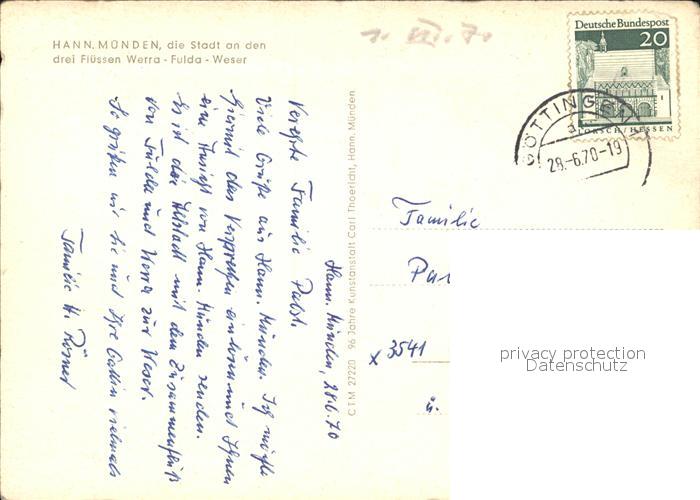 HANN. MÜNDEN, die Stadt an den
drei Flüssen Werra - Fulda - Weser
1. VII. 70
Deutsche Bundespost
20
LORSCH/HESSEN
GÖTTINGEN
28.-6.70-19
Hann. Münden, 28.6.70
Verehrte Familie Pabst.
Viele Grüße aus Hann. Münden. Ich möchte
hiermit das Versprechen einlösen und Ihnen
eine Ansicht von Hann. Münden senden.
Es ist die Altstadt mit dem Zusammenfluß
von Fulda und Werra zur Weser.
So grüßen wir Sie und Ihre Gattin vielmals
Familie H. Rösner
CTM 27220 96 Jahre Kunstanstalt Carl Thoericht, Hann. Münden
Familie
Pa
x 3541
ü.
privacy protection
Datenschutz